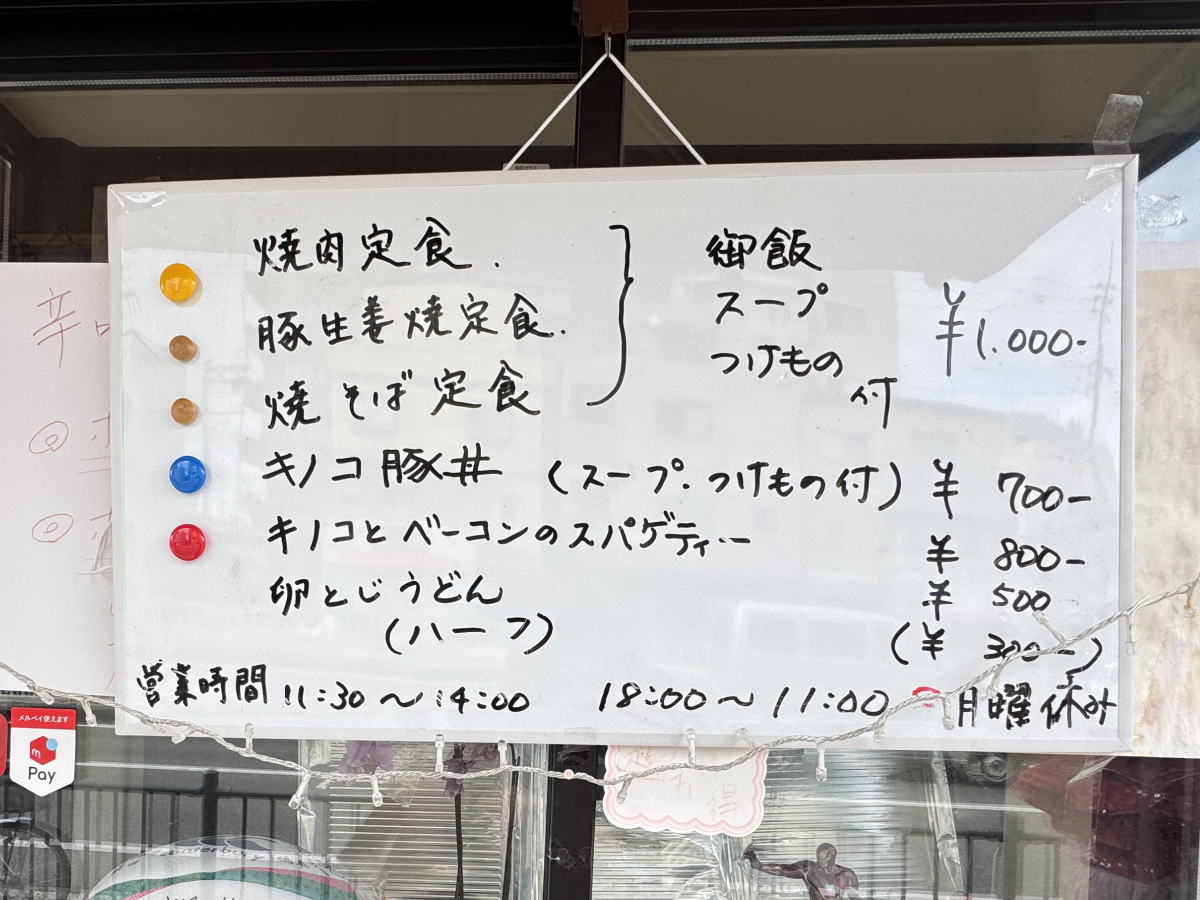 焼肉定食.
豚生姜焼定食.
焼そば定食
御飯
スープ
つけもの
付
¥1.000-
キノコ豚丼 (スープ.つけもの付) ¥ 700-
キノコとベーコンのスパゲティー ¥ 800-
卵とじうどん ¥ 500
(ハーフ) (¥ 300-)
営業時間 11:30～14:00 18:00～11:00 月曜休み
メルペイ使えます
m
Pay
辛
得